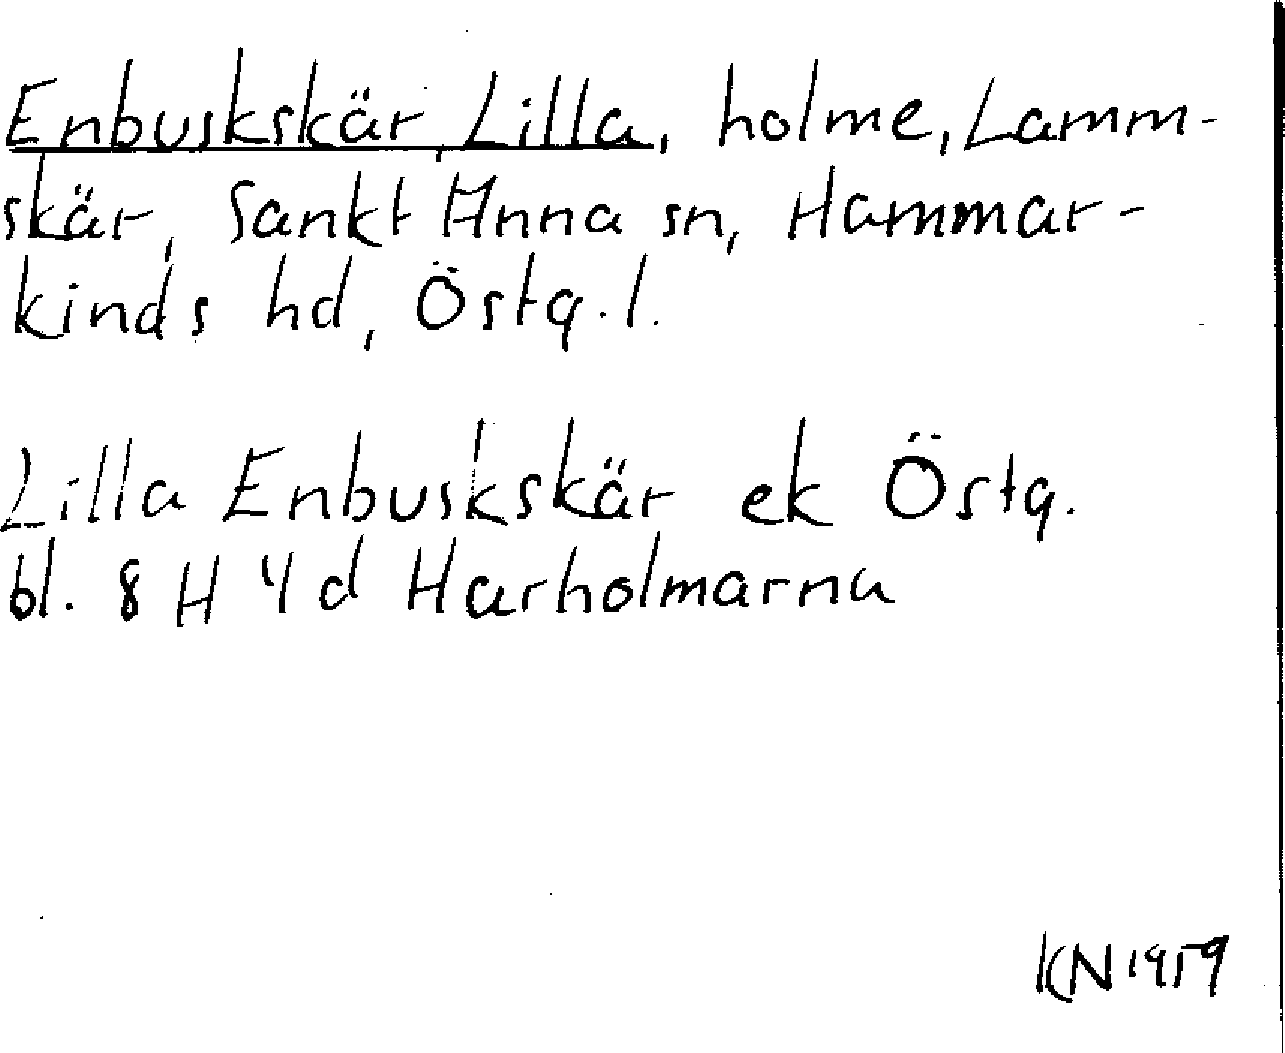 Enbuskskär, Lilla, holme, Lamm-
skär, Sankt Anna sn, Hammar-
kinds hd, Östg. l.
Lilla Enbuskskär ek Östg.
bl. 8 H 4 d Harholmarna
KN 1959